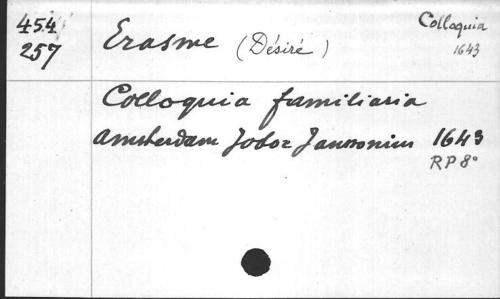 454
257
Erasme (Désiré)
Colloquia
1643
Colloquia familiaria
Amsterdam Jodoc Janssonius 1643
RP 8°